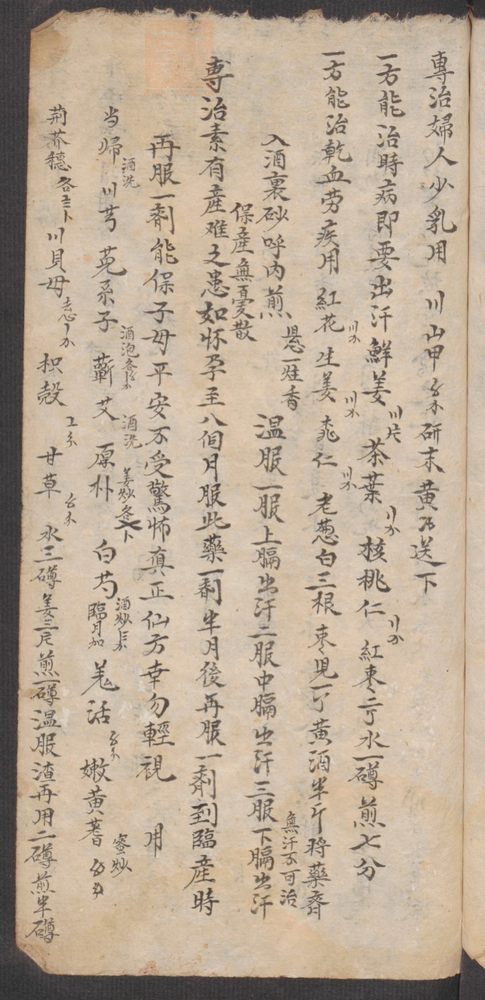 專治婦人少乳用 川山甲 研末黄酒送下
一方能治時病即要出汗鮮姜 〣片 茶葉 核桃仁 紅枣二丁水一罇煎七分
一方能治乾血劳疾用 紅花 生姜 桃仁 老葱白三根 枣児一丁 黄酒半斤将藥齊
入酒裏砂呼内煎 悬一炷香 温服一服上膈出汗二服中膈出汗三服下膈出汗 無汗不可治
保産無憂散
專治素有産难之患如怀孕至八個月服此藥一剤半月後再服一剤到臨産時
再服一剤能保子母平安不受驚怖真正仙方幸勿輕視 用
当歸 酒洗 川芎 菟糸子 酒泡 蘄艾 酒洗 厚朴 姜炒 白芍 酒炒 臨月加 羌活 嫩黄蓍 蜜炒
荆芥穗 川貝母 去心 枳殻 甘草 水三罇姜三片煎一罇温服渣再用二罇煎半罇